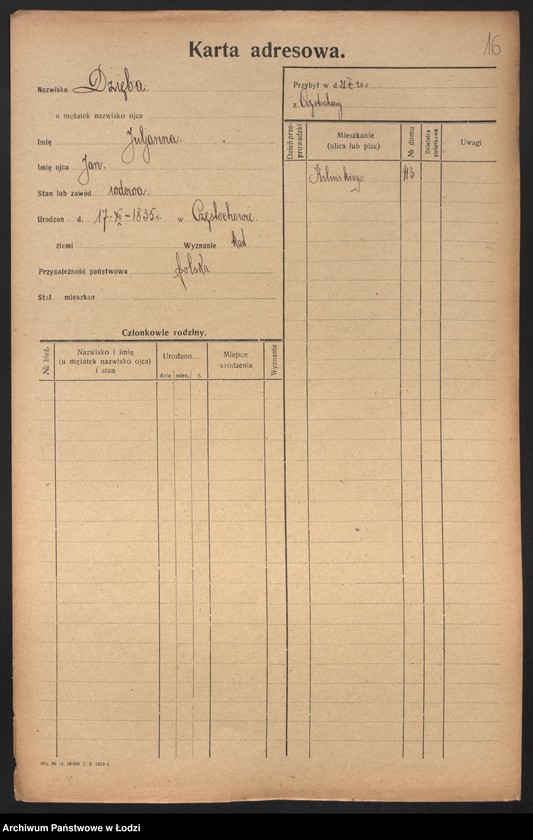 16
Karta adresowa.
Nazwisko Dzięba.
u mężatek nazwisko ojca
Imię Juljanna.
Imię ojca Jan.
Stan lub zawód wdowa.
Urodzon d. 17-XII-1835 r. w Częstochowie.
ziemi Wyznanie kat
Przynależność państwowa polska
Stał mieszkan
Przybył w d.
z Częstochowy
Dzień przeprowadzki
Mieszkanie
(ulica lub plac)
№ domu
Dzielnica podatkowa
Uwagi
Kilińskiego 113
Członkowie rodziny.
№ bież.
Nazwisko i imię
(u mężatek nazwisko ojca)
i stan
Urodzon
dnia mies. r.
Miejsce
urodzenia
Wyznanie
Archiwum Państwowe w Łodzi